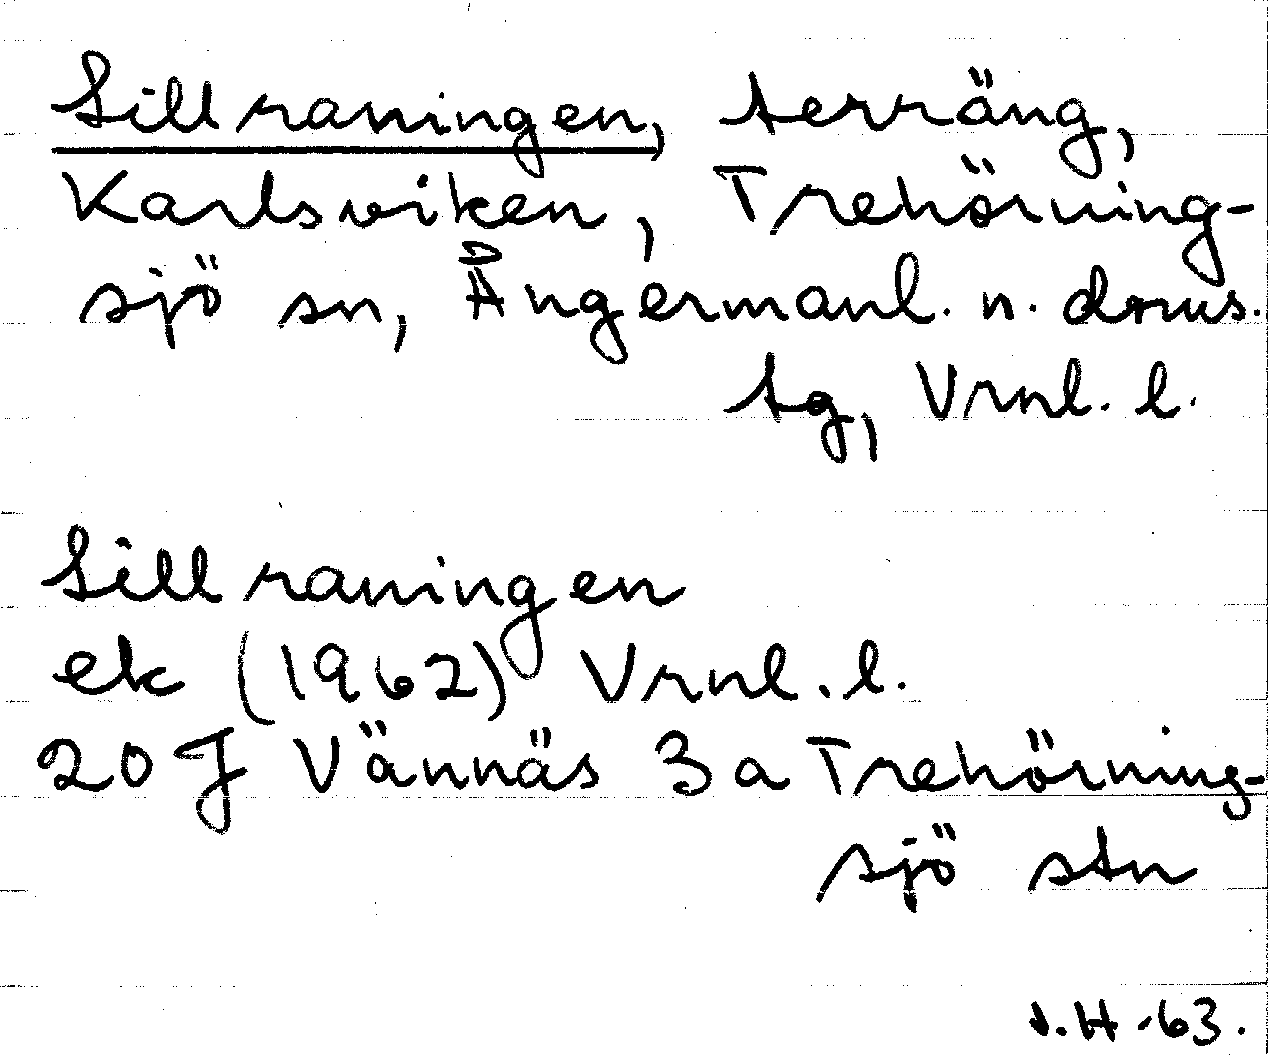 Sillraningen, terräng,
Karlsviken, Trehörning-
sjö sn, Ångermanl. n. doms.
tg, Vrnl. l.
Sillraningen
ek (1962) Vrnl. l.
20 J Vännäs 3 a Trehörning-
sjö stn
J.H -63.